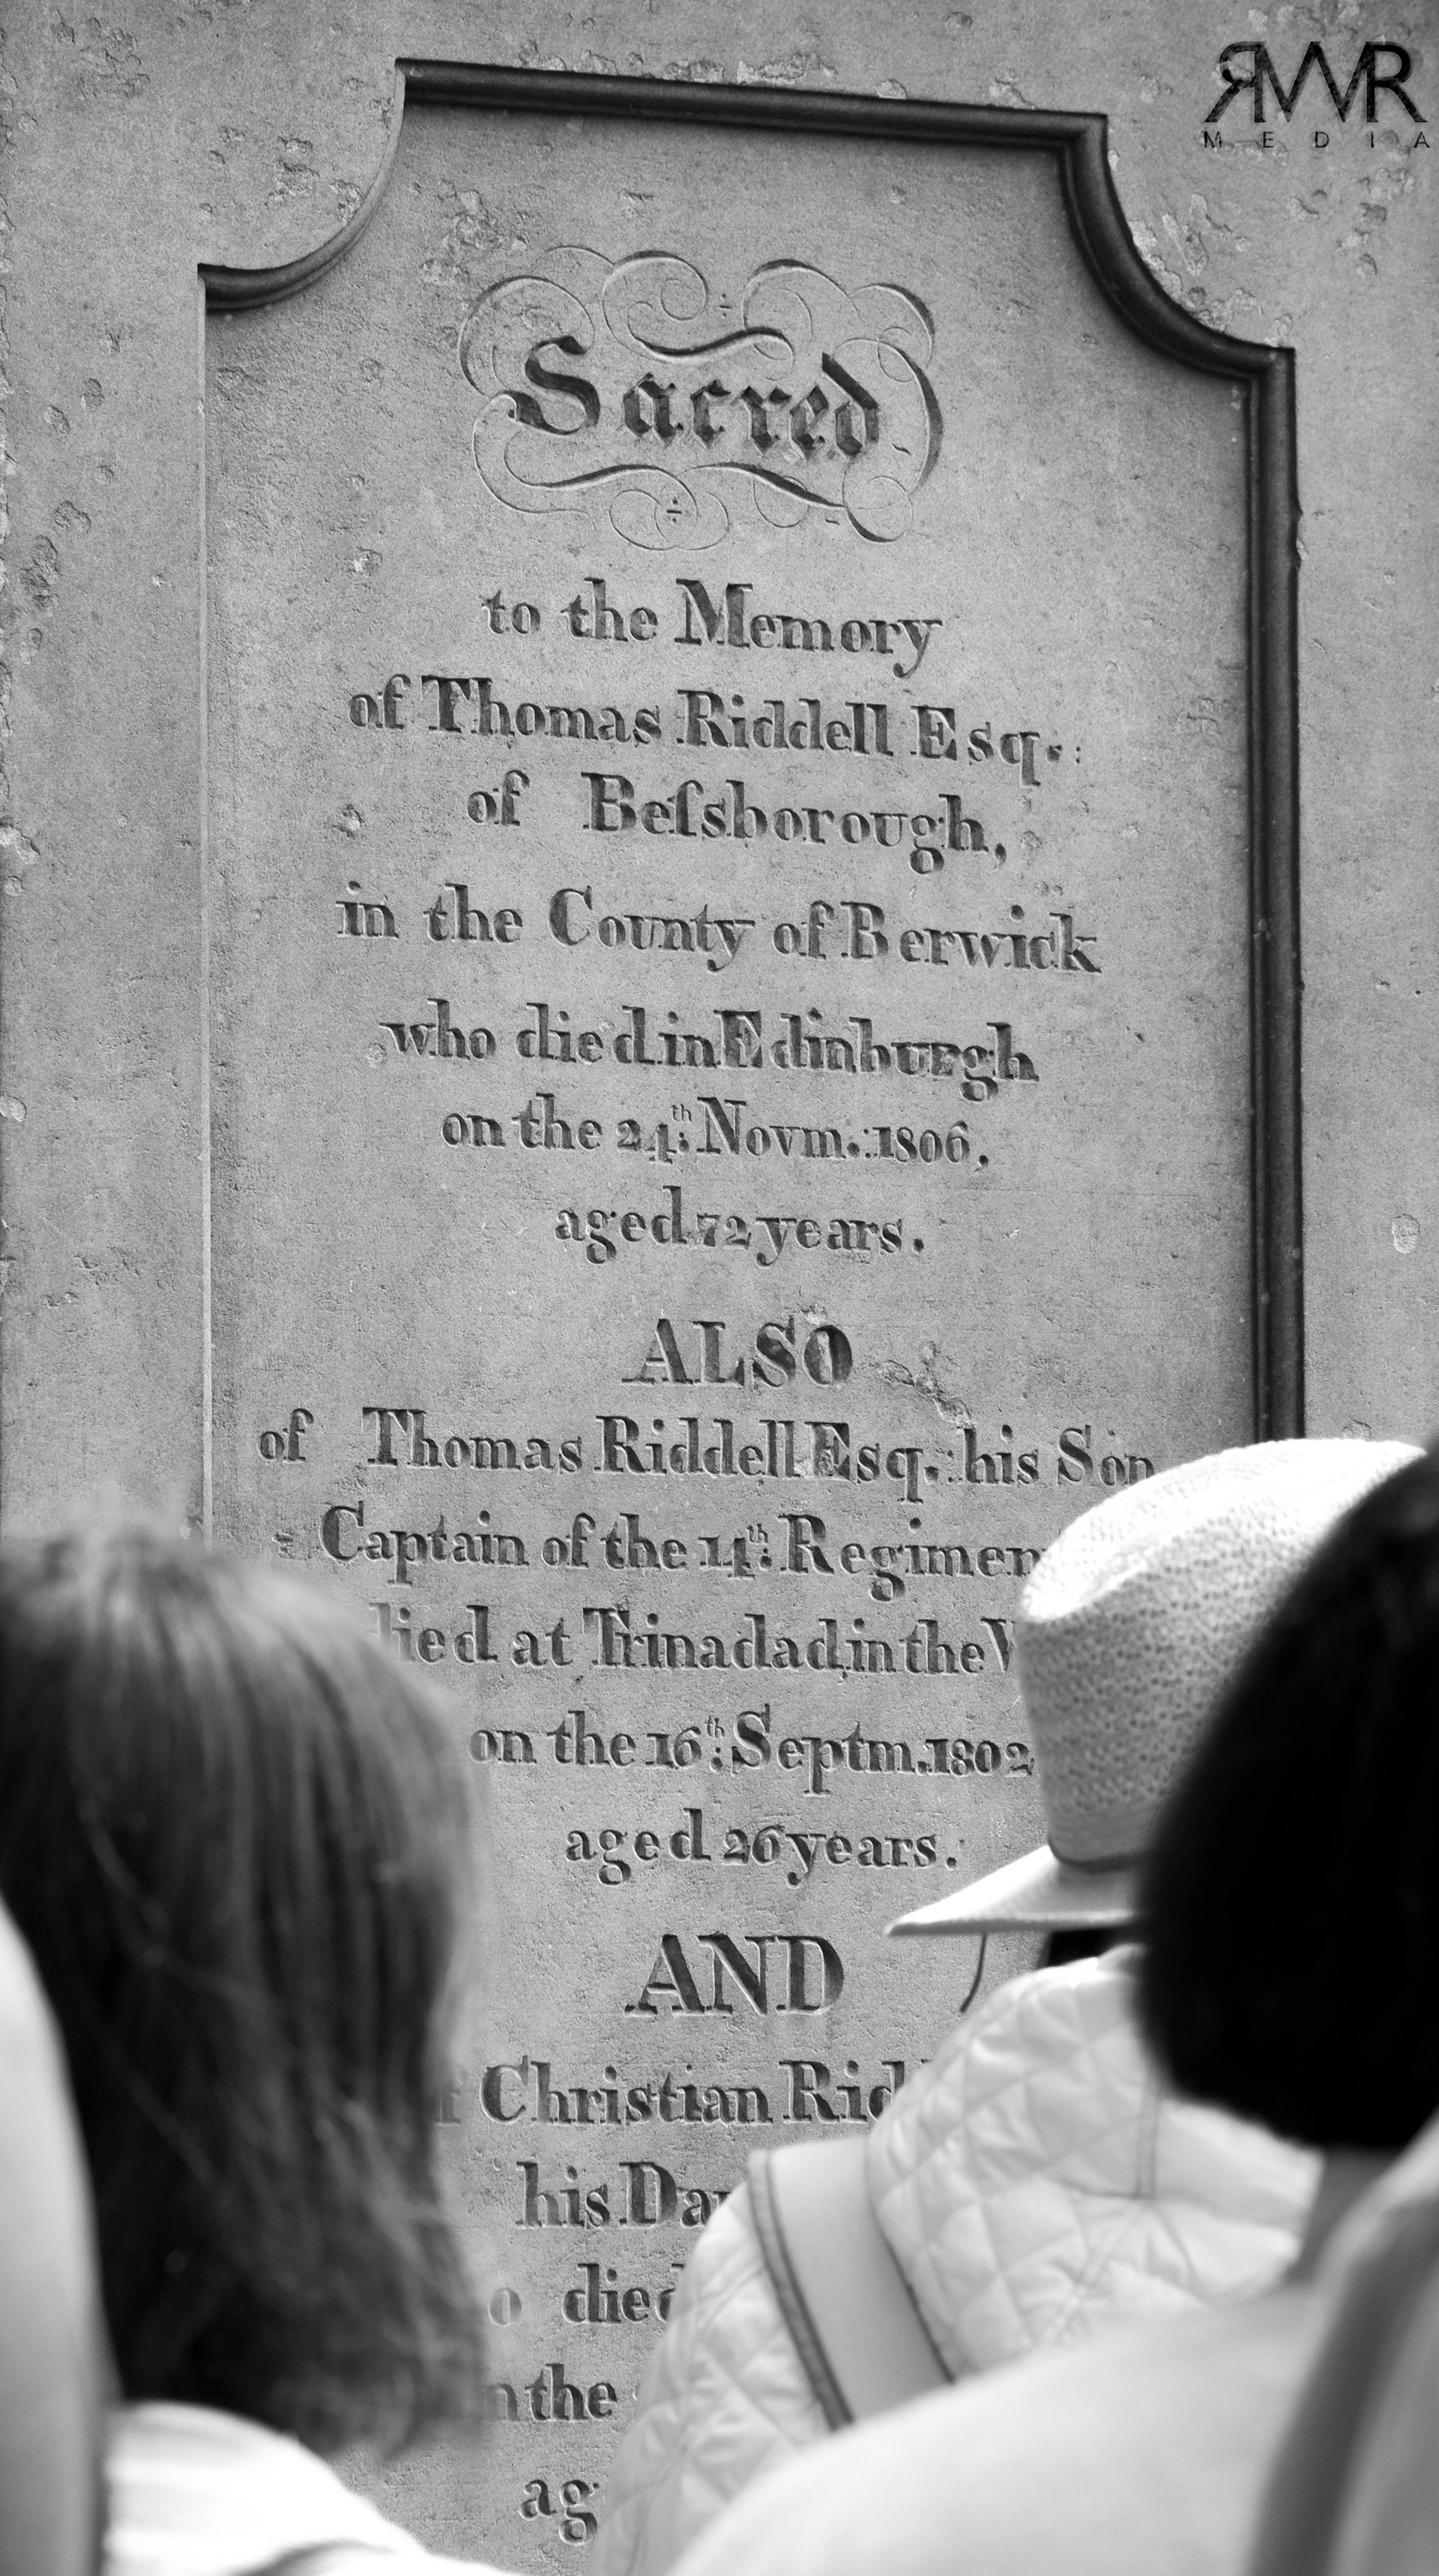 ЯWR
MEDIA
Sacred
to the Memory
of Thomas Riddell Esq.:
of Beſsborough,
in the County of Berwick
who died in Edinburgh
on the 24.th Novm.: 1806,
aged 72 years.
ALSO
of Thomas Riddell Esq.: his Son
Captain of the 14th: Regimen
died at Trinadad in the
on the 16th: Septm. 1802
aged 26 years.
AND
Christian
his
died
the